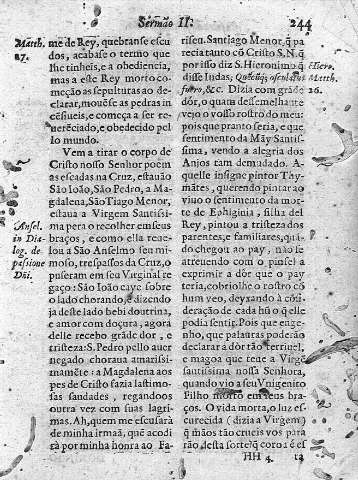 Sermão II.
244
Matth. 27.
me de Rey, quebranse escu
dos, acabase o termo que
lhe tinheis, e a obediencia,
mas a este Rey morto co-
meção as sepulturas ao de-
clarar, mouése as pedras in-
cẽsiueis, e começa a ser re-
uerẽciado, e obedecido pel
lo mundo.
Vem a tirar o corpo de
Cristo nosso Senhor poẽm
as escadas na Cruz, estauão
São Ioão, São Pedro, a Ma-
gdalena, São Tiago Menor,
estaua a Virgem Santissi-
ma pera o recolher em seus
Ansel. in Dia-log. de passione Dñi.
braços, e como ella reue-
lou a São Anselmo seu mi-
moso, trespassos da Cruz, o
puseram em seu Virginal re
gaço: São Ioão caye sobre
o lado chorando, e dizendo
ja deste lado bebi doutrina,
e amor com doçura, agora
delle recebo grãde dor, e
tristeza: S. Pedro pello auer
negado choraua amarissi-
mamẽte: a Magdalena aos
pes de Cristo fazia lastimo-
sas saudades, regandoos
outra vez com suas lagri-
mas. Ah, quem me escusará
de minha irmaã, que acodi
rà por minha honra ao Fa-
riseu. Santiago Menor, q̃ pa
recia tanto cõ Cristo S. N. q̃
por isso diz S. Hieronimo, q̃
Hiero.
disse Iudas, Quẽcũq; osculatus
Matth. 26.
fuero, &c. Dizia com grãde
dór, o quam dessemelhante
vejo o vosso rostro do meu:
pois que pranto seria, e que
sentimento da Mãy Santis-
sima, vendo a alegria dos
Anjos tam demudado. A
quelle insigne pintor Thy-
mãtes, querendo pintar ao
viuo o sentimento da mor-
te de Ephiginia, filha del
Rey, pintou a tristeza dos
parentes, e familiares, quã-
do chegou ao pay, não se
atreuendo com o pinsel a
exprimir a dór que o pay
teria, cobriolhe o rostro cõ
hum veo, deyxando à cõsi-
deração de cada hũ o q̃ elle
podia sentir. Pois que enge-
nho, que palauras poderão
declarar a dór tão terriuel,
e magoa que teue a Virgẽ
santissima nossa Senhora,
quando vio a seu Vnigenito
Filho morto em seus bra-
ços. O vida morta, o luz es-
curecida (dizia a Virgem)
q̃ mãos tão crueis vos para
rão desta sorte? q̃ coroa e es
HH 4.
ta